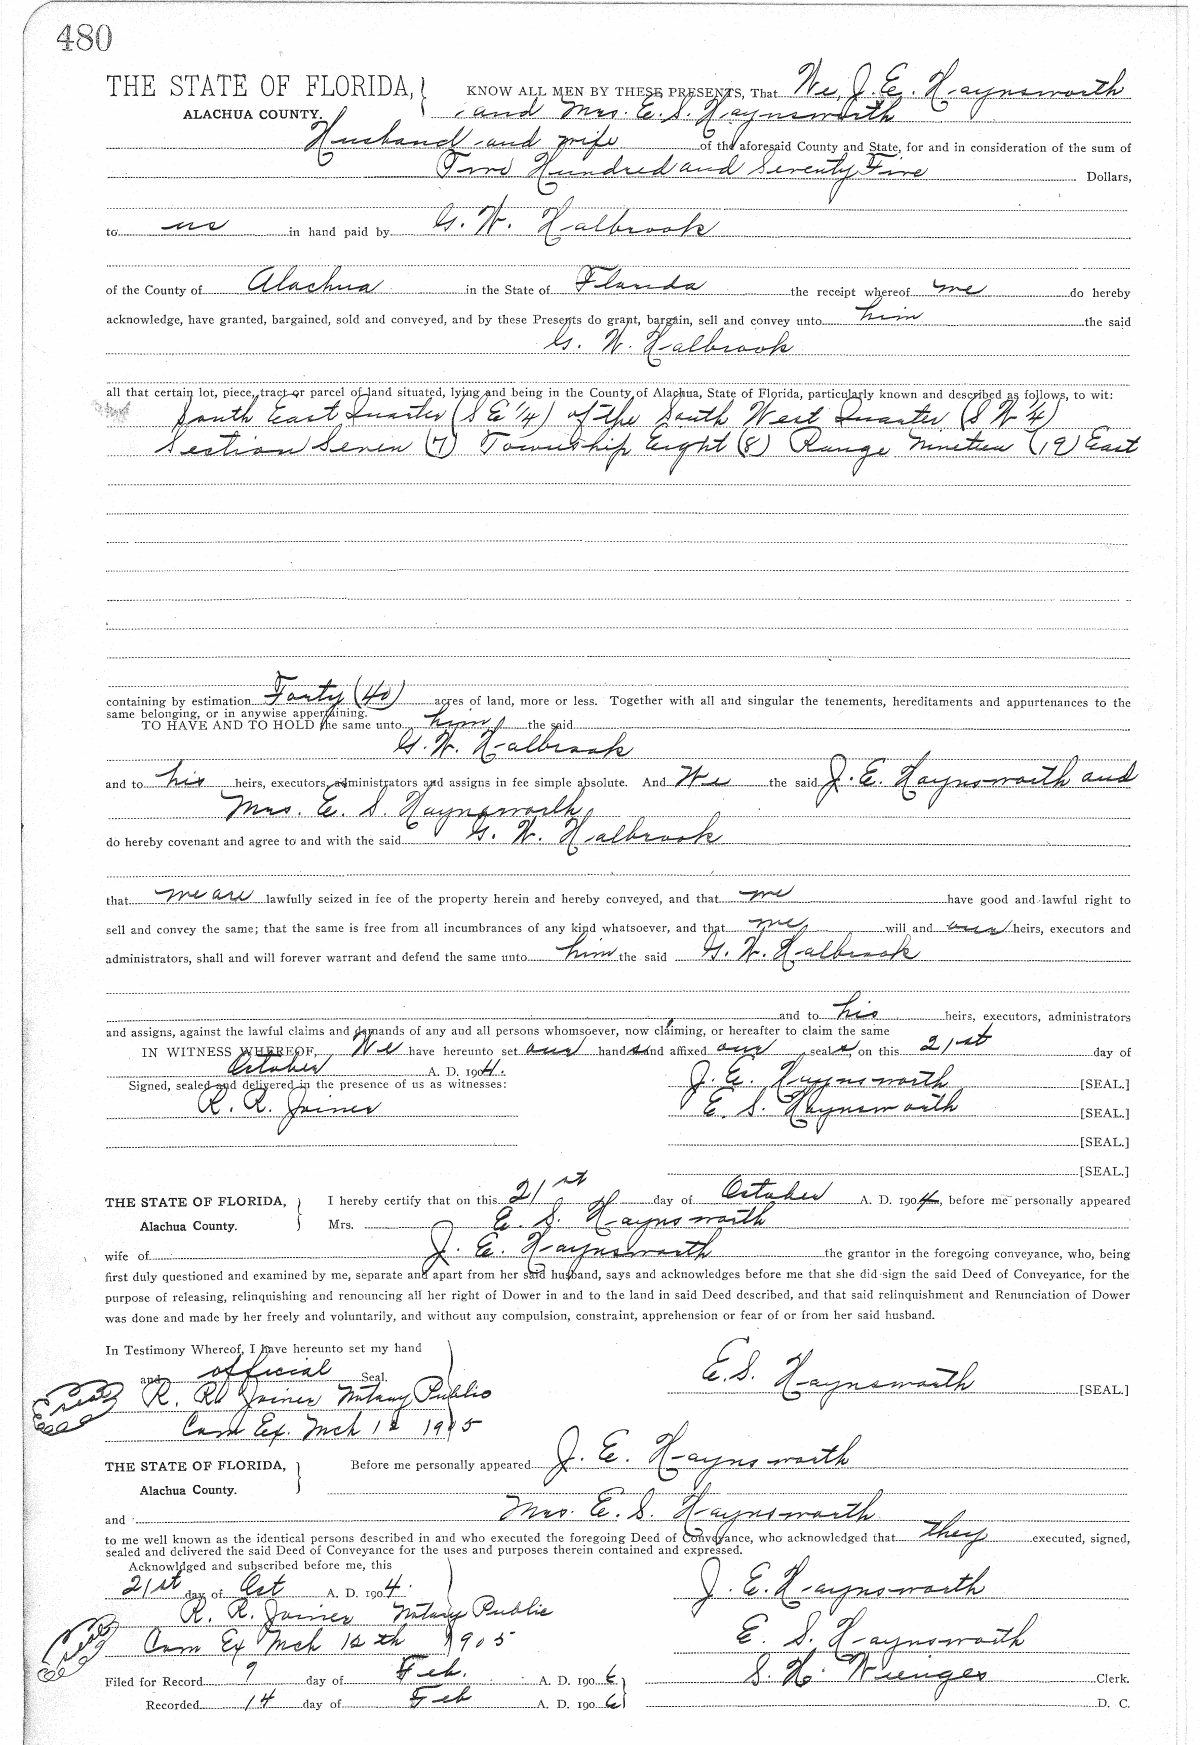 480
THE STATE OF FLORIDA, KNOW ALL MEN BY THESE PRESENTS, That We, J. E. Haynsworth
ALACHUA COUNTY. and Mrs. E. S. Haynsworth
Husband and wife of the aforesaid County and State, for and in consideration of the sum of
Two Hundred and Seventy Five Dollars,
to us in hand paid by G. W. Halbrook
of the County of Alachua in the State of Florida the receipt whereof we do hereby
acknowledge, have granted, bargained, sold and conveyed, and by these Presents do grant, bargain, sell and convey unto him the said
G. W. Halbrook
all that certain lot, piece, tract or parcel of land situated, lying and being in the County of Alachua, State of Florida, particularly known and described as follows, to wit:
South East Quarter (S E 1/4) of the South West Quarter (S W 1/4)
Section Seven (7) Township Eight (8) Range Nineteen (19) East
containing by estimation Forty (40) acres of land, more or less. Together with all and singular the tenements, hereditaments and appurtenances to the
same belonging, or in anywise appertaining.
TO HAVE AND TO HOLD the same unto him the said
G. W. Halbrook
and to his heirs, executors, administrators and assigns in fee simple absolute. And We the said J. E. Haynsworth and
Mrs. E. S. Haynsworth
do hereby covenant and agree to and with the said G. W. Halbrook
that we are lawfully seized in fee of the property herein and hereby conveyed, and that we have good and lawful right to
sell and convey the same; that the same is free from all incumbrances of any kind whatsoever, and that we will and our heirs, executors and
administrators, shall and will forever warrant and defend the same unto him the said G. W. Halbrook
and to his heirs, executors, administrators
and assigns, against the lawful claims and demands of any and all persons whomsoever, now claiming, or hereafter to claim the same
IN WITNESS WHEREOF, We have hereunto set our hands and affixed our seals, on this 21st day of
October A. D. 1904.
Signed, sealed and delivered in the presence of us as witnesses: J. E. Haynsworth [SEAL.]
R. R. Joiner E. S. Haynsworth [SEAL.]
[SEAL.]
[SEAL.]
THE STATE OF FLORIDA, I hereby certify that on this 21st day of October A. D. 1904, before me personally appeared
Alachua County. Mrs. E. S. Haynsworth
wife of J. E. Haynsworth the grantor in the foregoing conveyance, who, being
first duly questioned and examined by me, separate and apart from her said husband, says and acknowledges before me that she did sign the said Deed of Conveyance, for the
purpose of releasing, relinquishing and renouncing all her right of Dower in and to the land in said Deed described, and that said relinquishment and Renunciation of Dower
was done and made by her freely and voluntarily, and without any compulsion, constraint, apprehension or fear of or from her said husband.
In Testimony Whereof, I have hereunto set my hand
and official Seal. E.S. Haynsworth [SEAL.]
Seal R. R. Joiner Notary Public
Com Ex. Mch 12 1905
THE STATE OF FLORIDA, Before me personally appeared J. E. Haynsworth
Alachua County.
and Mrs. E. S. Haynsworth
to me well known as the identical persons described in and who executed the foregoing Deed of Conveyance, who acknowledged that they executed, signed,
sealed and delivered the said Deed of Conveyance for the uses and purposes therein contained and expressed.
Acknowldged and subscribed before me, this
21st day of Oct A. D. 1904. J. E. Haynsworth
R. R. Joiner Notary Public
Seal Com Ex Mch 12th 1905 E. S. Haynsworth
Filed for Record 9 day of Feb. A. D. 1906 S. H. Wienges Clerk.
Recorded 14 day of Feb A. D. 1906 D. C.